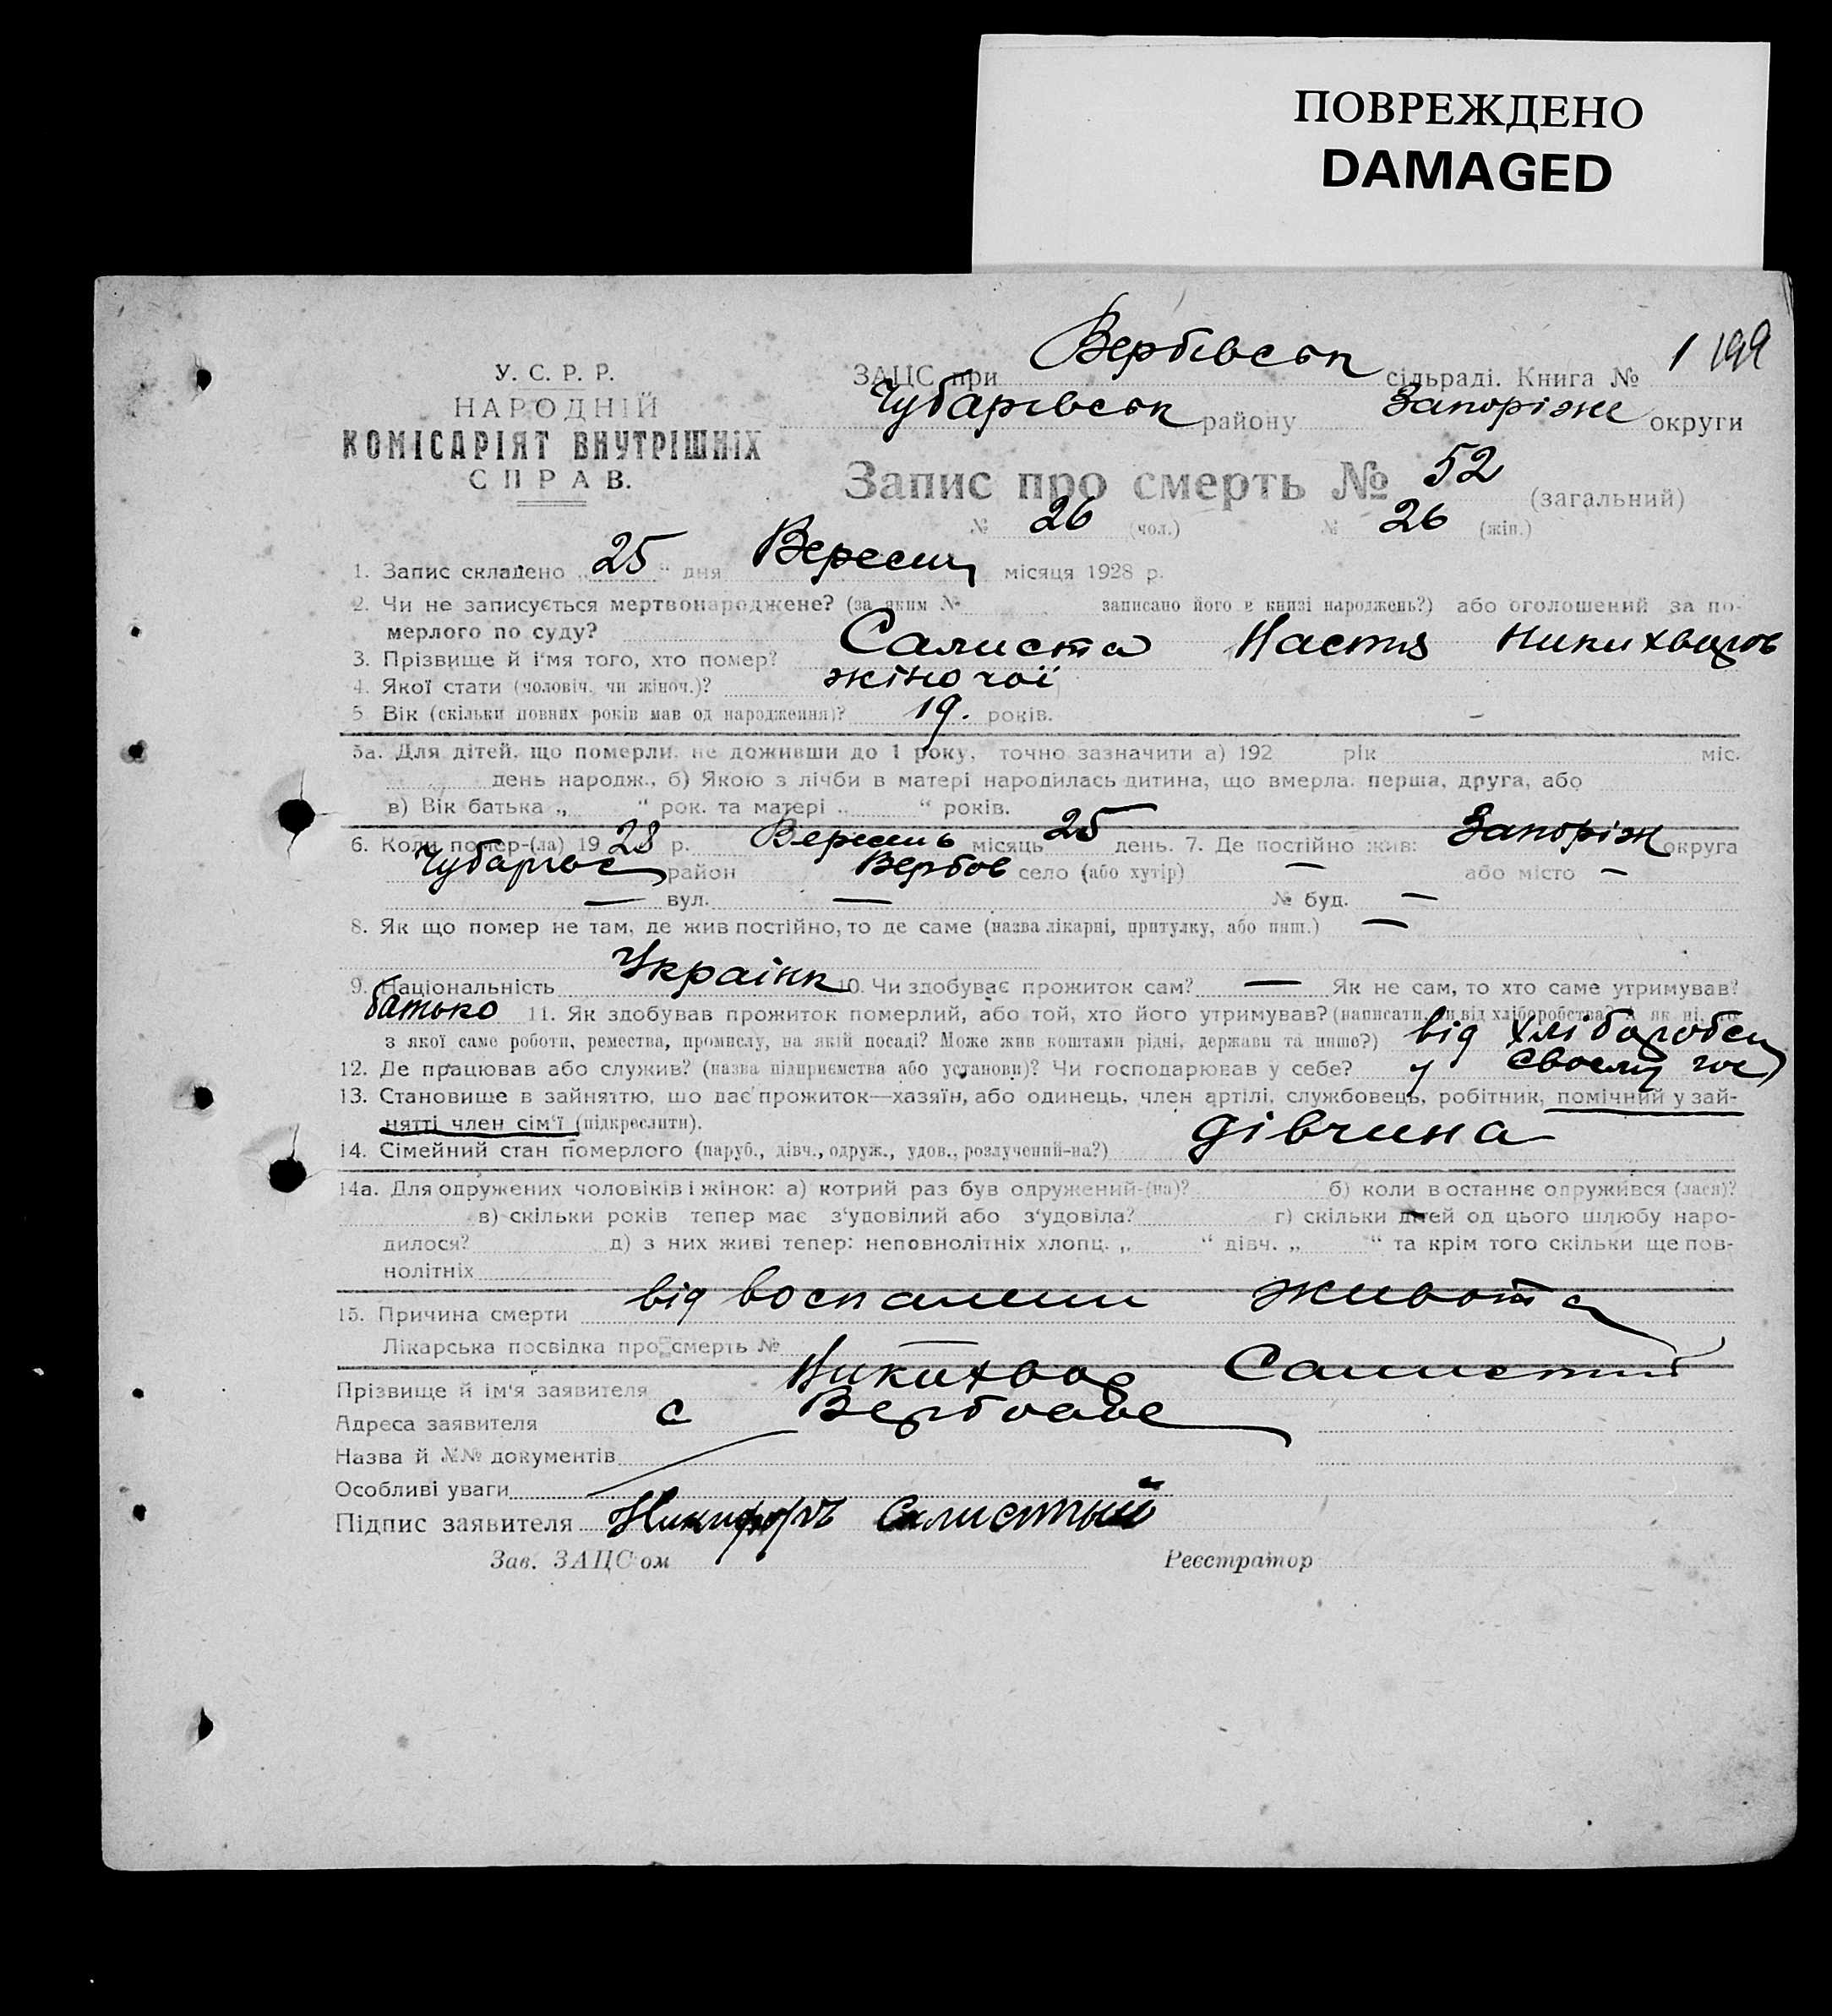 ПОВРЕЖДЕНО
DAMAGED
У. С. Р. Р.
НАРОДНІЙ
КОМІСАРІЯТ ВНУТРІШНІХ
СПРАВ.
ЗАЦС при Вербівськ сільраді. Книга № 1 199
Чубарівськ району Запоріже округи
Запис про смерть № 52 (загальний)
№ 26 (чол.) № 26 (жін.)
1. Запис складено „ 25 “ дня Вересня місяця 1928 р.
2. Чи не записується мертвонароджене? (за яким № записано його в книзі народжень?) або оголошений за по-
мерлого по суду?
3. Прізвище й і'мя того, хто помер? Салиста Настя
4. Якої стати (чоловіч. чи жіноч.)? жіночої
5 Вік (скільки повних років мав од народження)? 19. років.
5а. Для дітей, що померли, не доживши до 1 року, точно зазначити а) 192 рік міс.
день народж., б) Якою з лічби в матері народилась дитина, що вмерла. перша, друга, або
в) Вік батька „ “ рок. та матері „ “ років.
6. Коли помер-(ла) 19 28 р. Вересень місяць 25 день. 7. Де постійно жив: Запоріж округа
район Вербов село (або хутір) — або місто —
— вул. — № буд. —
8. Як що помер не там, де жив постійно, то де саме (назва лікарні, притулку, або инш.) —
9. Національність Украінк 10. Чи здобуває прожиток сам? — Як не сам, то хто саме утримував?
батько 11. Як здобував прожиток померлий, або той, хто його утримував? (написати, чи від хліборобства? А як ні, то
з якої саме роботи, ремества, промислу, на якій посаді? Може жив коштами рідні, держави та инше?) від
12. Де працював або служив? (назва підприємства або установи)? Чи господарював у себе? у своєму гос
13. Становище в зайняттю, що дає прожиток—хазяїн, або одинець, член артілі, службовець, робітник, помічний у зай-
нятті член сім'ї (підкреслити).
14. Сімейний стан померлого (паруб., дівч., одруж., удов., розлучений-на?) дівчина
14а. Для одружених чоловіків і жінок: а) котрий раз був одружений-(на)? б) коли в останнє одружився (лася)?
в) скільки років тепер має з'удовілий або з'удовіла? г) скільки дітей од цього шлюбу наро-
дилося? д) з них живі тепер: неповнолітніх хлопц. „ “ дівч. „ “ та крім того скільки ще пов-
нолітніх
15. Причина смерти від воспалени живота
Лікарська посвідка про смерть № —
Прізвище й ім'я заявителя Никихвор Салистий
Адреса заявителя с
Назва й №№ документів
Особливі уваги
Підпис заявителя Никифоръ Салистый
Зав. ЗАЦС'ом Реєстратор